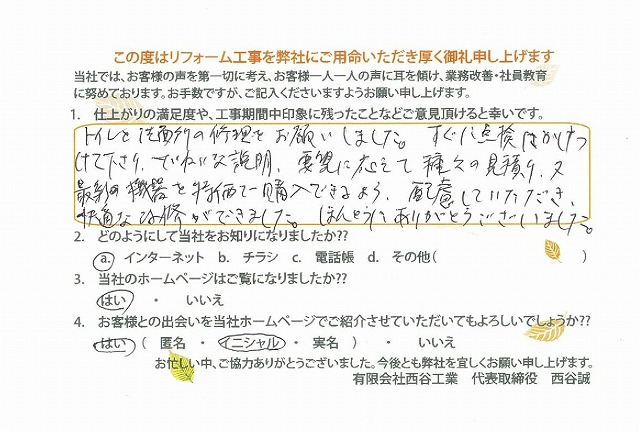 この度はリフォーム工事を弊社にご用命いただき厚く御礼申し上げます
当社では、お客様の声を第一切に考え、お客様一人一人の声に耳を傾け、業務改善・社員教育
に努めております。お手数ですが、ご記入くださいますようお願い申し上げます。
1. 仕上がりの満足度や、工事期間中印象に残ったことなどご意見頂けると幸いです。
トイレと洗面所の修理をお願いしました。 すぐに点検にかけつ
けて下さり、ていねいな説明、要望に応えて種々の見積り、又
最新の機器を特価で購入できるよう、配慮していただき、
快適な改修ができました。ほんとうにありがとうございました。
2. どのようにして当社をお知りになりましたか??
a. インターネット b. チラシ c. 電話帳 d. その他( )
3. 当社のホームページはご覧になりましたか??
はい ・ いいえ
4. お客様との出会いを当社ホームページでご紹介させていただいてもよろしいでしょうか??
はい ( 匿名 ・ イニシャル ・ 実名 ) ・ いいえ
お忙しい中、ご協力ありがとうございました。今後とも弊社を宜しくお願い申し上げます。
有限会社西谷工業 代表取締役 西谷誠